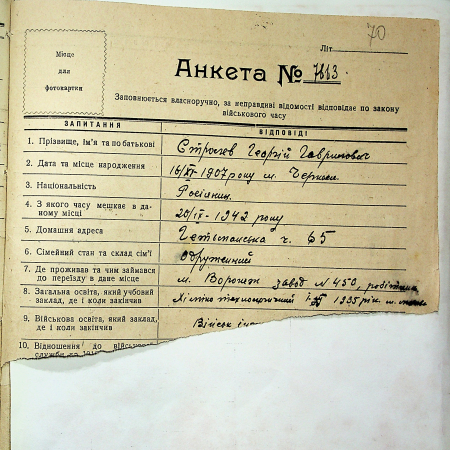 70
Літ
Місце
для
фотокартки
Анкета №
Заповнюється власноручно, за неправдиві відомості відповідає по закону
військового часу
ЗАПИТАННЯ ВІДПОВІДІ
1. Прізвище, ім'я та по батькові Георгій Гаврилович
2. Дата та місце народження 16/XI-1907 року м.
3. Національність Росіянин
4. З якого часу мешкає в даному місці 20/IV-1942 року
5. Домашня адреса Гетьманська ч. 65
6. Сімейний стан та склад сім'ї Одружений
7. Де проживав та чим займався
до переїзду в дане місце м. Воронеж завод N 450, робітник
8. Загальна освіта, який учбовий
заклад, де і коли закінчив 1935 рік. м.
9. Військова освіта, який заклад,
де і коли закінчив Військ
10. Відношення до